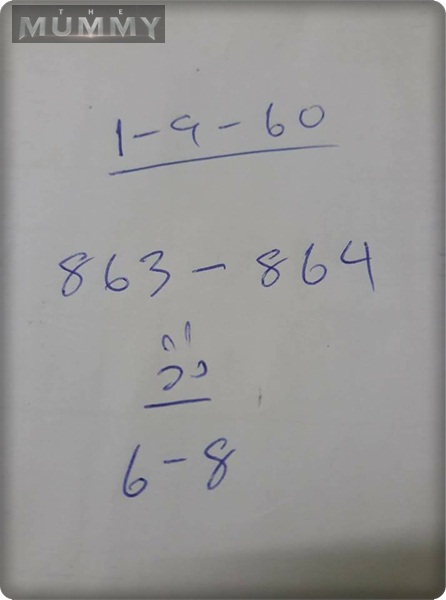 THE
MUMMY
1-9-60
863-864
วิ่ง
6-8